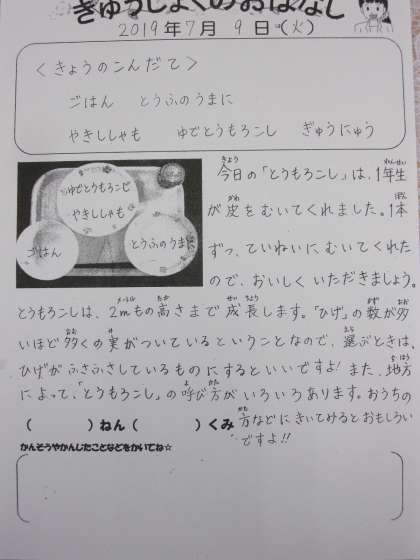 きゅうしょくのおはなし
2019年7月9日(火)
<きょうのこんだて>
ごはん とうふのうまに
やきししゃも ゆでとうもろこし ぎゅうにゅう
ゆでとうもろこし
やきししゃも
ごはん
とうふのうまに
今日の「とうもろこし」は、1年生
が皮をむいてくれました。1本
ずつ、ていねいにむいてくれた
ので、おいしくいただきましょう。
とうもろこしは、2mもの高さまで成長します。「ひげ」の数が多
いほど多くの実がついているということなので、選ぶときは、
ひげがふさふさしているものにするといいですよ!また、地方
によって、「とうもろこし」の呼び方がいろいろあります。おうちの
方などにきいてみるとおもしろい
ですよ!!
( )ねん( )くみ
かんそうやかんじたことなどをかいてね☆